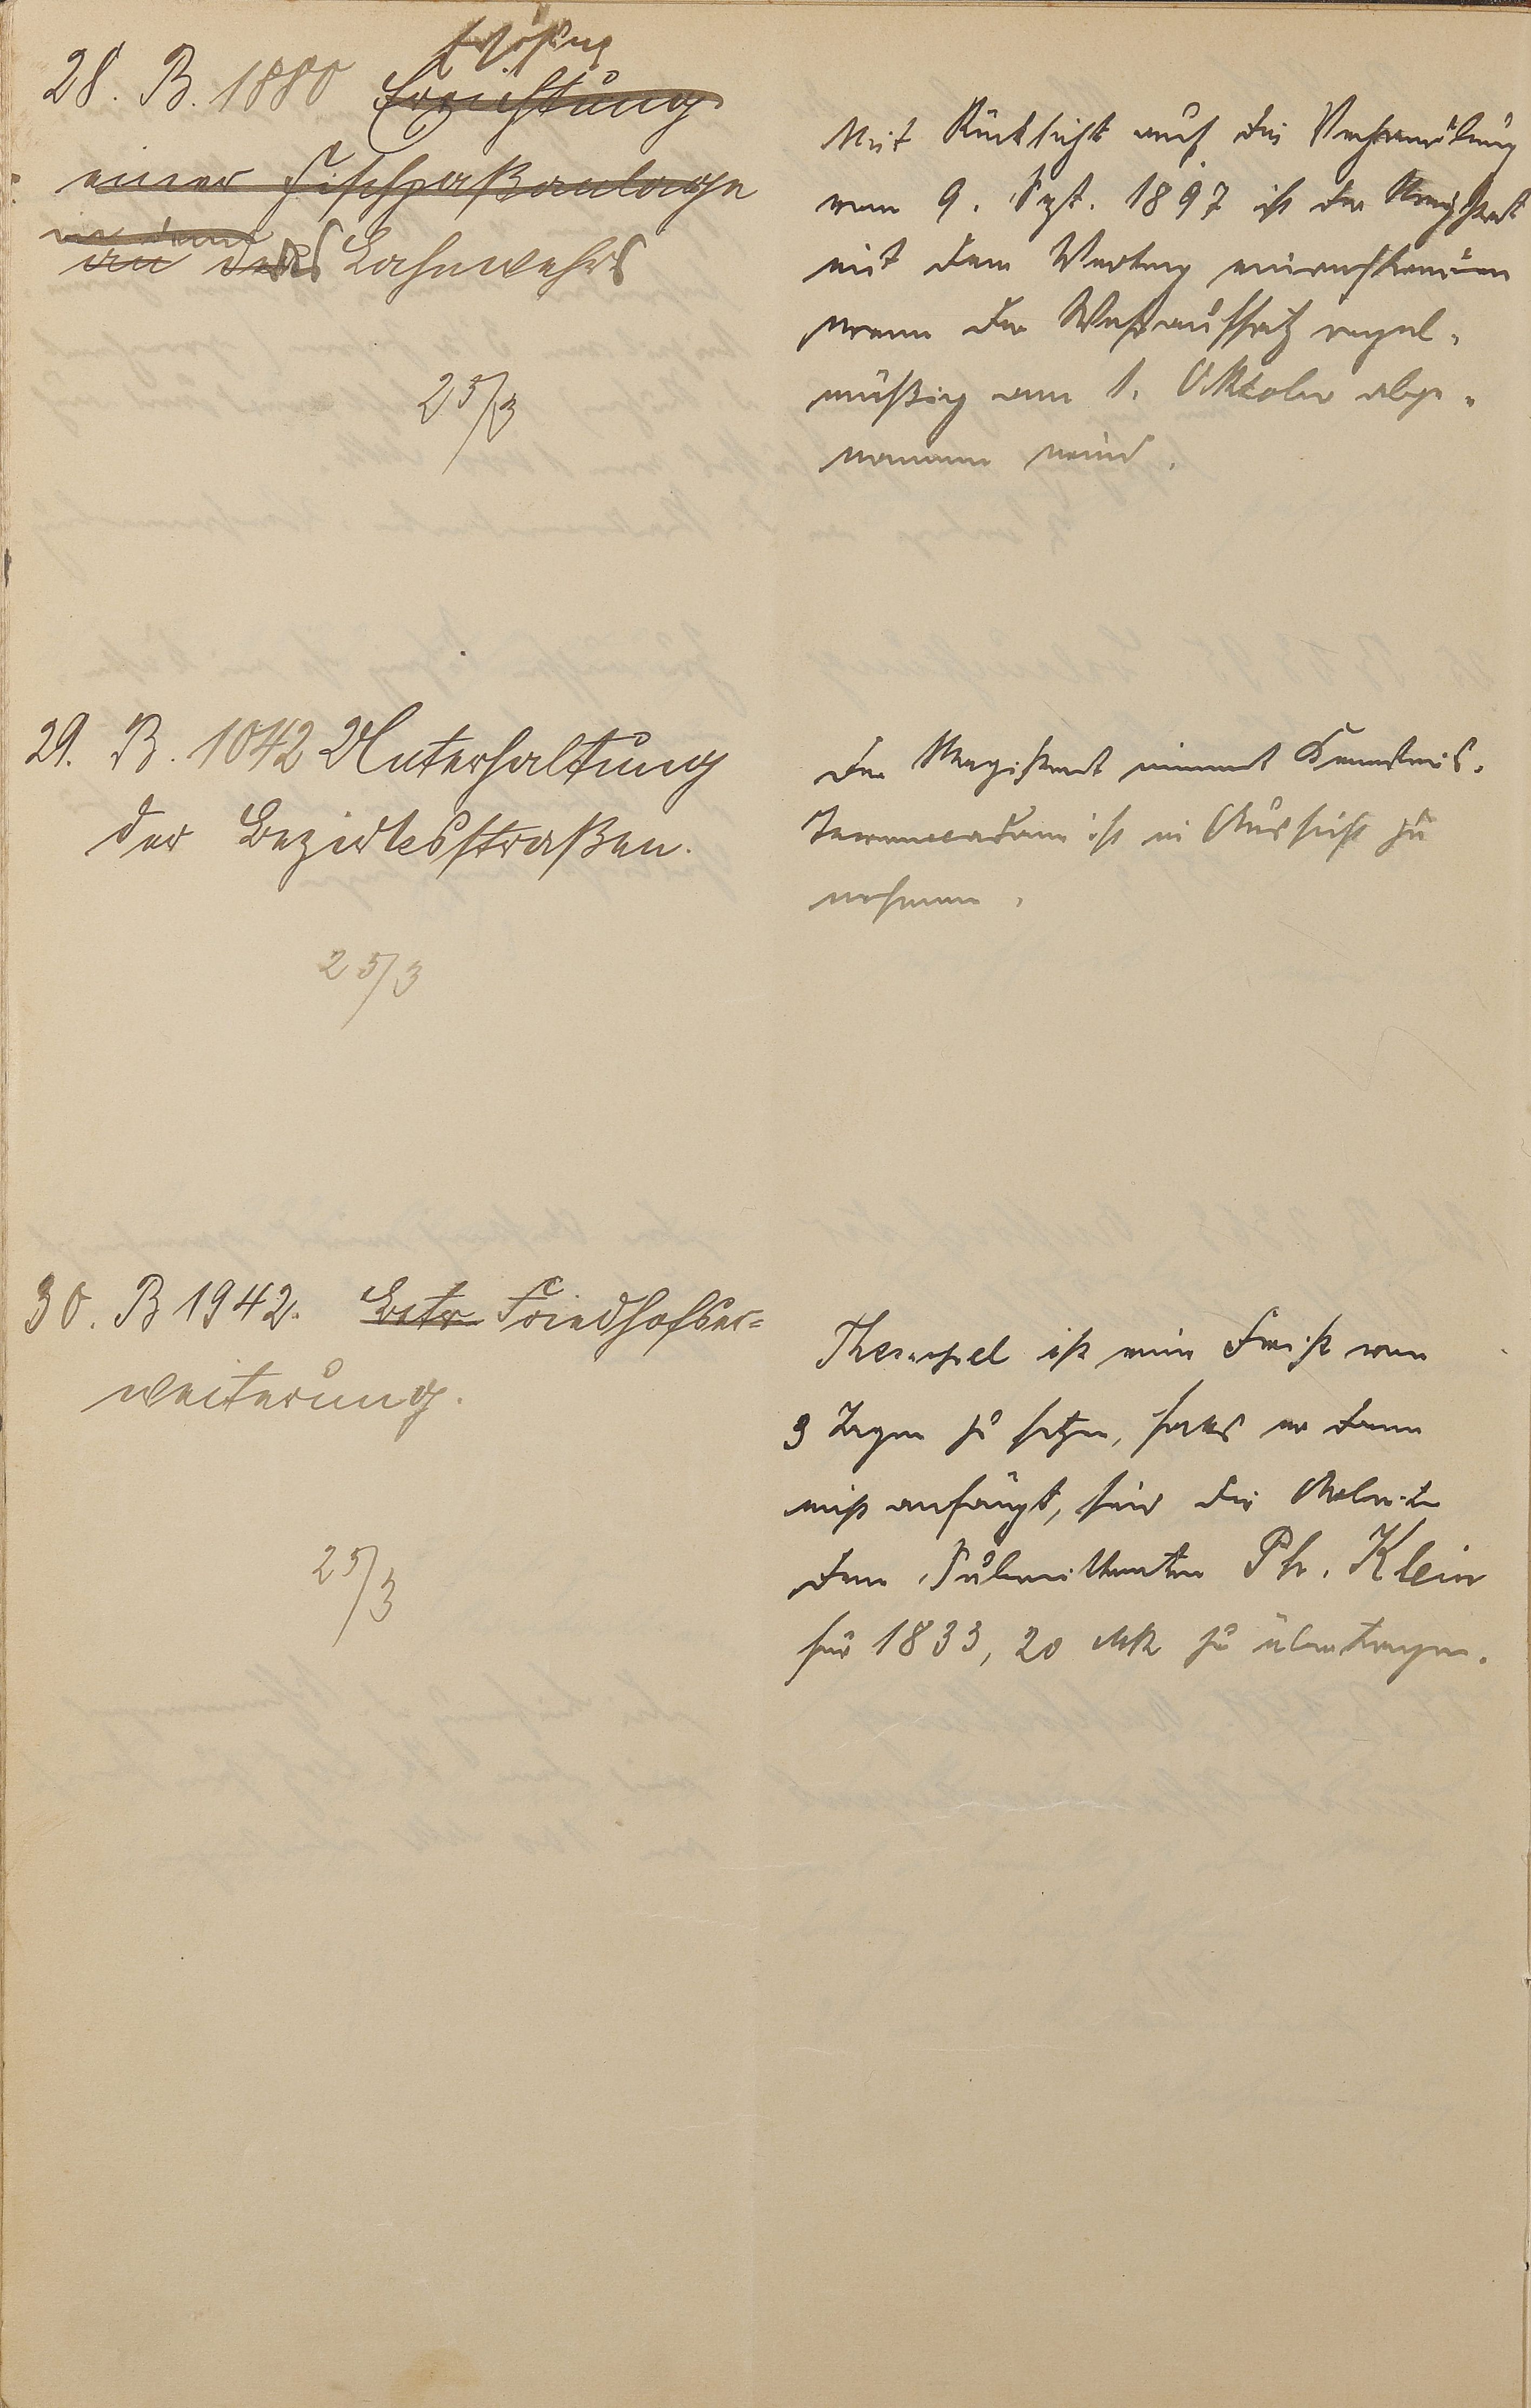 Erhöhung
28. B. 1880 Errichtung
einer Fischpaßanlage
in dem
an des Lahnwehrs
25/3
Mit Rücksicht auf die Verhandlung
vom 9. Sept. 1897 ist der Magistrat
mit dem Vertrag einverstanden
wenn der Wehraufsatz regel-
mäßig am 1. Oktober abge-
nommen wird.
29. B. 1042 Unterhaltung
der Bezirksstraßen.
25/3
Der Magistrat nimmt Kenntnis.
ist in Aussicht zu
nehmen.
30. B 1942. Betr. Friedhofser=
weiterung.
25/3
ist eine Frist von
3 Tagen zu setzen, falls er dann
nicht anfängt, sind die Arbeiten
dem Submittenten Ph. Klein
für 1833,20 Mk zu übertragen.